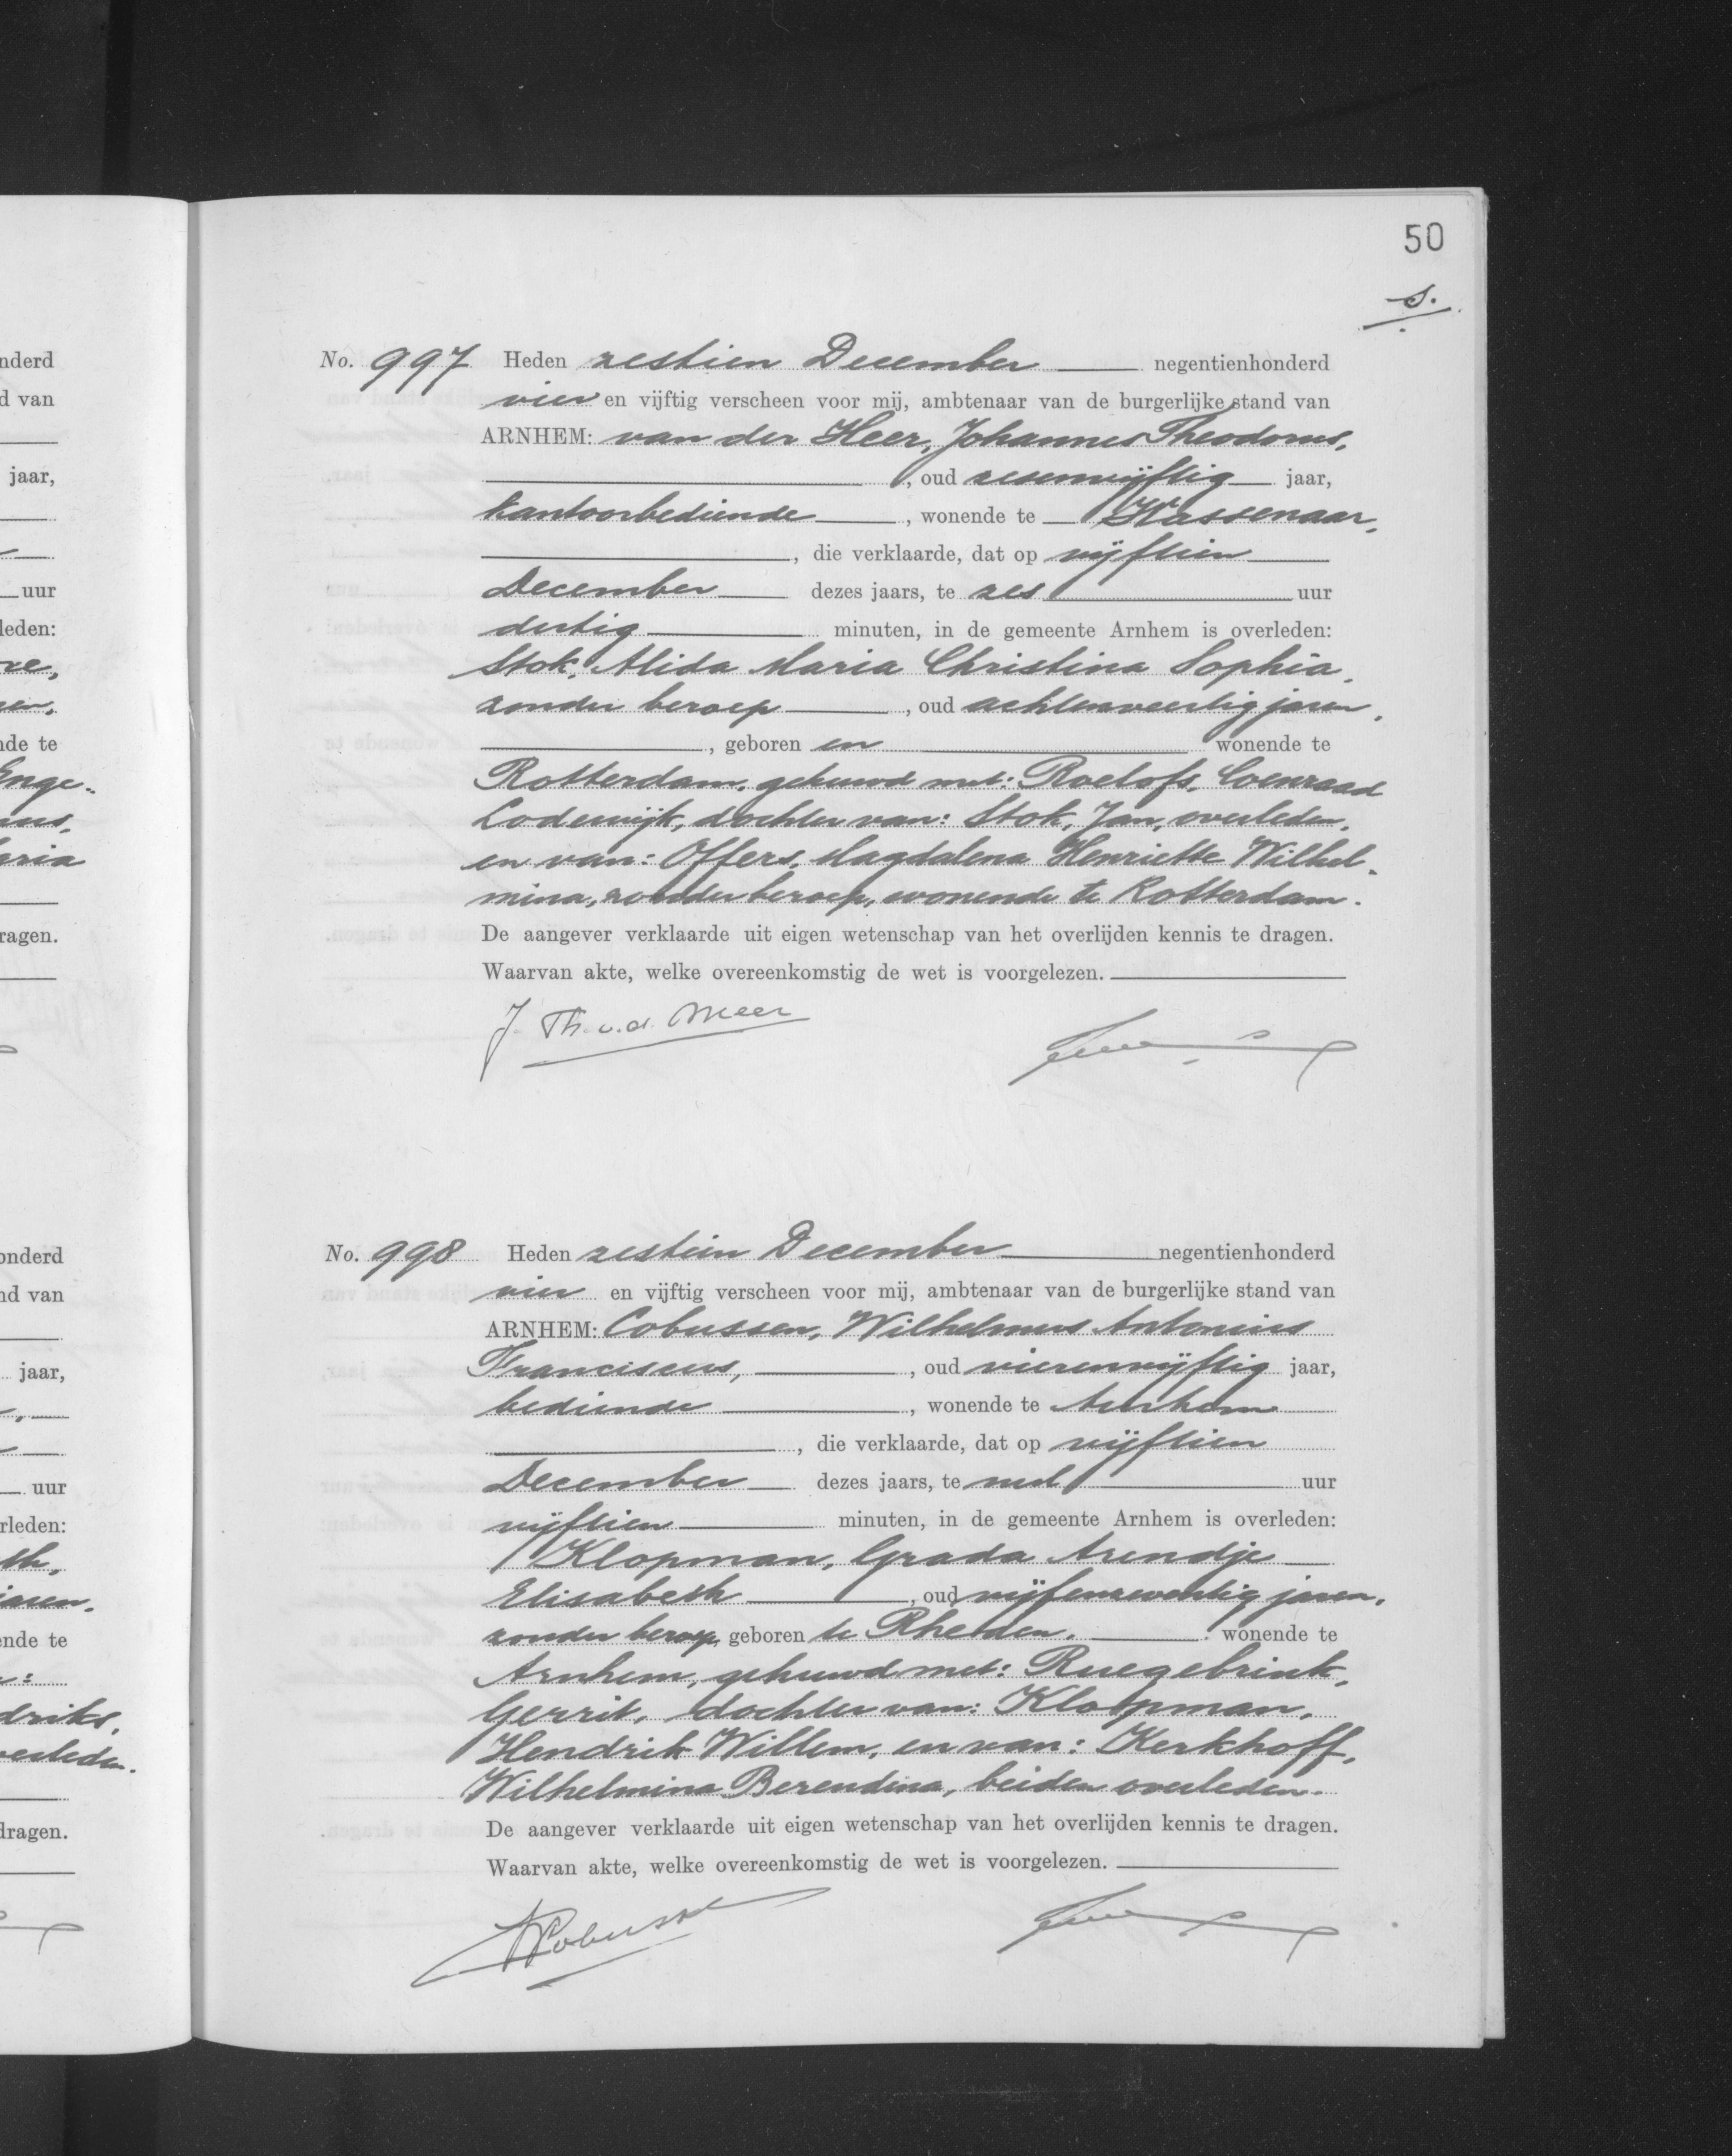 50
s.
nderd
d van
jaar,
uur
leden:
re,
en,
nde te
Enge-
aria
ragen.
No. 997 Heden zestien December negentienhonderd
vier en vijftig verscheen voor mij, ambtenaar van de burgerlijke stand van
ARNHEM: van der Heer, Johannes Theodorus,
, oud zesenvijftig jaar,
kantoorbediende , wonende te Wassenaar,
, die verklaarde, dat op vijftien
December dezes jaars, te zes uur
dertig minuten, in de gemeente Arnhem is overleden:
Stok, Alida Maria Christina Sophia,
zonder beroep , oud achtenveertig jaren,
, geboren en wonende te
Rotterdam, gehuwd met: Roelofs, Coenraad
Lodewijk, dochter van: Stok, Jan, overleden,
en van: Offers, Magdalena Henriette Wilhel-
mina, zonder beroep, wonende te Rotterdam.
De aangever verklaarde uit eigen wetenschap van het overlijden kennis te dragen.
Waarvan akte, welke overeenkomstig de wet is voorgelezen.
J. Th. v. d. Meer
onderd
nd van
jaar,
uur
rleden:
th,
jaren.
ende te
driks,
overleden.
dragen.
No. 998 Heden zestien December negentienhonderd
vier en vijftig verscheen voor mij, ambtenaar van de burgerlijke stand van
ARNHEM: Cobussen, Wilhelmus Antonius
Franciscus, , oud vierenvijftig jaar,
bediende , wonende te Arnhem
, die verklaarde, dat op vijftien
December dezes jaars, te nul uur
vijftien minuten, in de gemeente Arnhem is overleden:
Klopman, Grada Arendje
Elisabeth , oud vijfenzeventig jaren,
zonder beroep, geboren te Rheden, wonende te
Arnhem, gehuwd met: Ruegebrink,
Gerrit, dochter van: Klopman,
Hendrik Willem, en van: Kerkhoff,
Wilhelmina Berendina, beiden overleden.
De aangever verklaarde uit eigen wetenschap van het overlijden kennis te dragen.
Waarvan akte, welke overeenkomstig de wet is voorgelezen.